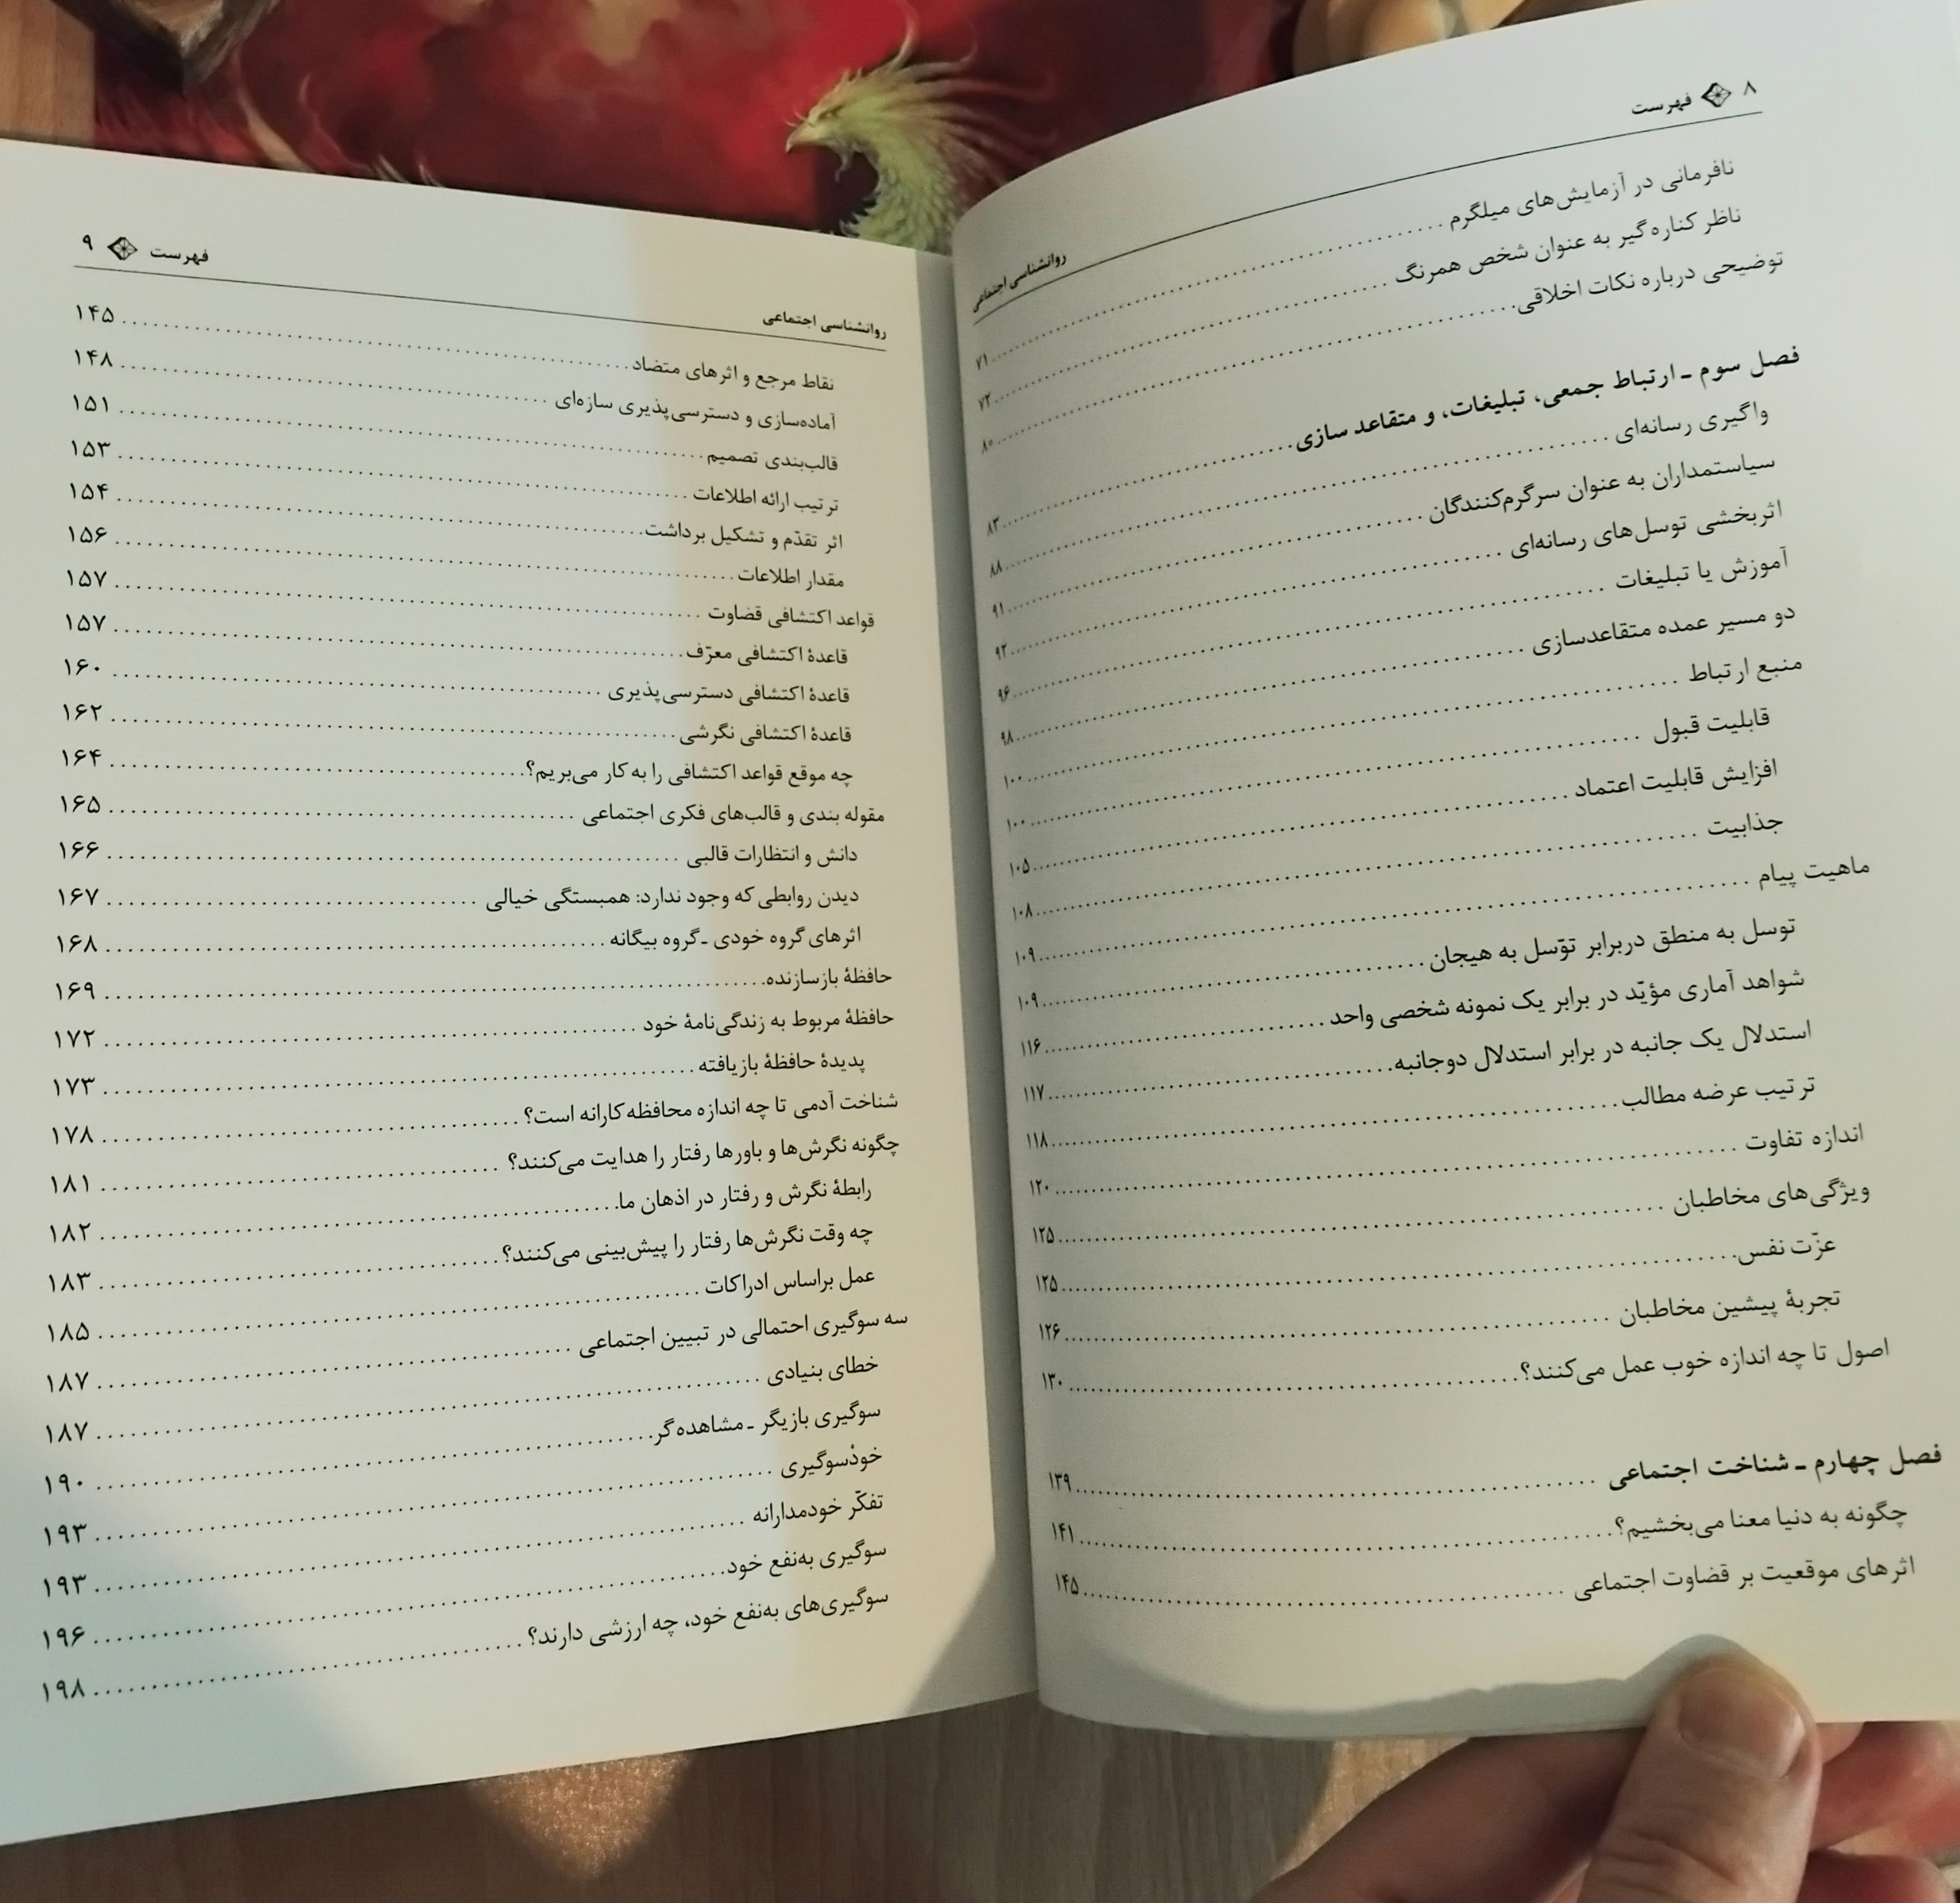 ۸ فهرست
روانشناسی اجتماعی
نافرمانی در آزمایش‌های میلگرم ........ ۷۱
ناظر کناره‌گیر به عنوان شخص همرنگ ........ ۷۲
توضیحی درباره نکات اخلاقی ........ ۸۰
فصل سوم ـ ارتباط جمعی، تبلیغات، و متقاعد سازی ........ ۸۳
واگیری رسانه‌ای ........ ۸۸
سیاستمداران به عنوان سرگرم‌کنندگان ........ ۹۱
اثربخشی توسل‌های رسانه‌ای ........ ۹۲
آموزش یا تبلیغات ........ ۹۶
دو مسیر عمده متقاعدسازی ........ ۹۸
منبع ارتباط ........ ۱۰۰
قابلیت قبول ........ ۱۰۰
افزایش قابلیت اعتماد ........ ۱۰۵
جذابیت ........ ۱۰۸
ماهیت پیام ........ ۱۰۹
توسل به منطق دربرابر توّسل به هیجان ........ ۱۰۹
شواهد آماری مؤیّد در برابر یک نمونه شخصی واحد ........ ۱۱۶
استدلال یک جانبه در برابر استدلال دوجانبه ........ ۱۱۷
ترتیب عرضه مطالب ........ ۱۱۸
اندازه تفاوت ........ ۱۲۰
ویژگی‌های مخاطبان ........ ۱۲۵
عزّت نفس ........ ۱۲۵
تجربهٔ پیشین مخاطبان ........ ۱۲۶
اصول تا چه اندازه خوب عمل می‌کنند؟ ........ ۱۳۰
فصل چهارم ـ شناخت اجتماعی ........ ۱۳۹
چگونه به دنیا معنا می‌بخشیم؟ ........ ۱۴۱
اثرهای موقعیت بر قضاوت اجتماعی ........ ۱۴۵
فهرست ۹
روانشناسی اجتماعی
نقاط مرجع و اثرهای متضاد ........ ۱۴۵
آماده‌سازی و دسترسی‌پذیری سازه‌ای ........ ۱۴۸
قالب‌بندی تصمیم ........ ۱۵۱
ترتیب ارائه اطلاعات ........ ۱۵۳
اثر تقدّم و تشکیل برداشت ........ ۱۵۴
مقدار اطلاعات ........ ۱۵۶
قواعد اکتشافی قضاوت ........ ۱۵۷
قاعدهٔ اکتشافی معرّف ........ ۱۵۷
قاعدهٔ اکتشافی دسترسی‌پذیری ........ ۱۶۰
قاعدهٔ اکتشافی نگرشی ........ ۱۶۲
چه موقع قواعد اکتشافی را به کار می‌بریم؟ ........ ۱۶۴
مقوله بندی و قالب‌های فکری اجتماعی ........ ۱۶۵
دانش و انتظارات قالبی ........ ۱۶۶
دیدن روابطی که وجود ندارد: همبستگی خیالی ........ ۱۶۷
اثرهای گروه خودی ـ گروه بیگانه ........ ۱۶۸
حافظهٔ بازسازنده ........ ۱۶۹
حافظهٔ مربوط به زندگی‌نامهٔ خود ........ ۱۷۲
پدیدهٔ حافظهٔ بازیافته ........ ۱۷۳
شناخت آدمی تا چه اندازه محافظه‌کارانه است؟ ........ ۱۷۸
چگونه نگرش‌ها و باورها رفتار را هدایت می‌کنند؟ ........ ۱۸۱
رابطهٔ نگرش و رفتار در اذهان ما ........ ۱۸۲
چه وقت نگرش‌ها رفتار را پیش‌بینی می‌کنند؟ ........ ۱۸۳
عمل براساس ادراکات ........ ۱۸۵
سه سوگیری احتمالی در تبیین اجتماعی ........ ۱۸۷
خطای بنیادی ........ ۱۸۷
سوگیری بازیگر ـ مشاهده‌گر ........ ۱۹۰
خودْسوگیری ........ ۱۹۳
تفکّر خودمدارانه ........ ۱۹۳
سوگیری به‌نفع خود ........ ۱۹۶
سوگیری‌های به‌نفع خود، چه ارزشی دارند؟ ........ ۱۹۸